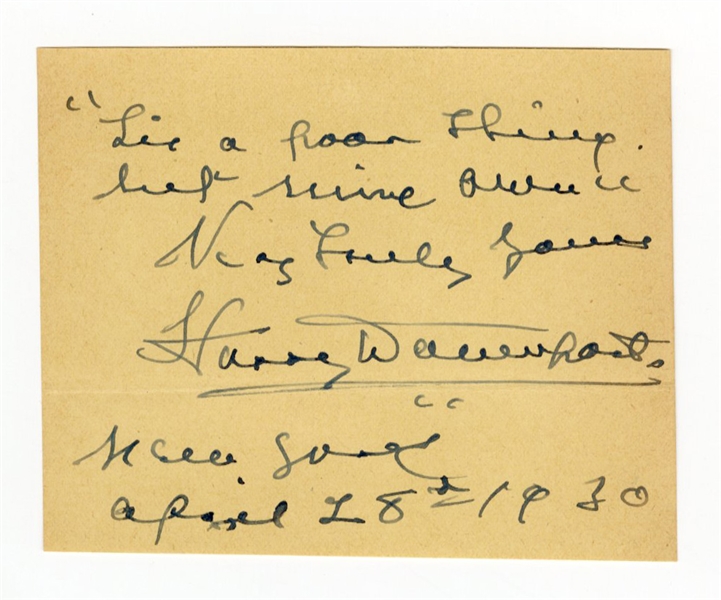 "Tis a poor thing.
but mine own"
Very Truly yours
Harry Davenport.
New York
April 28th 1930